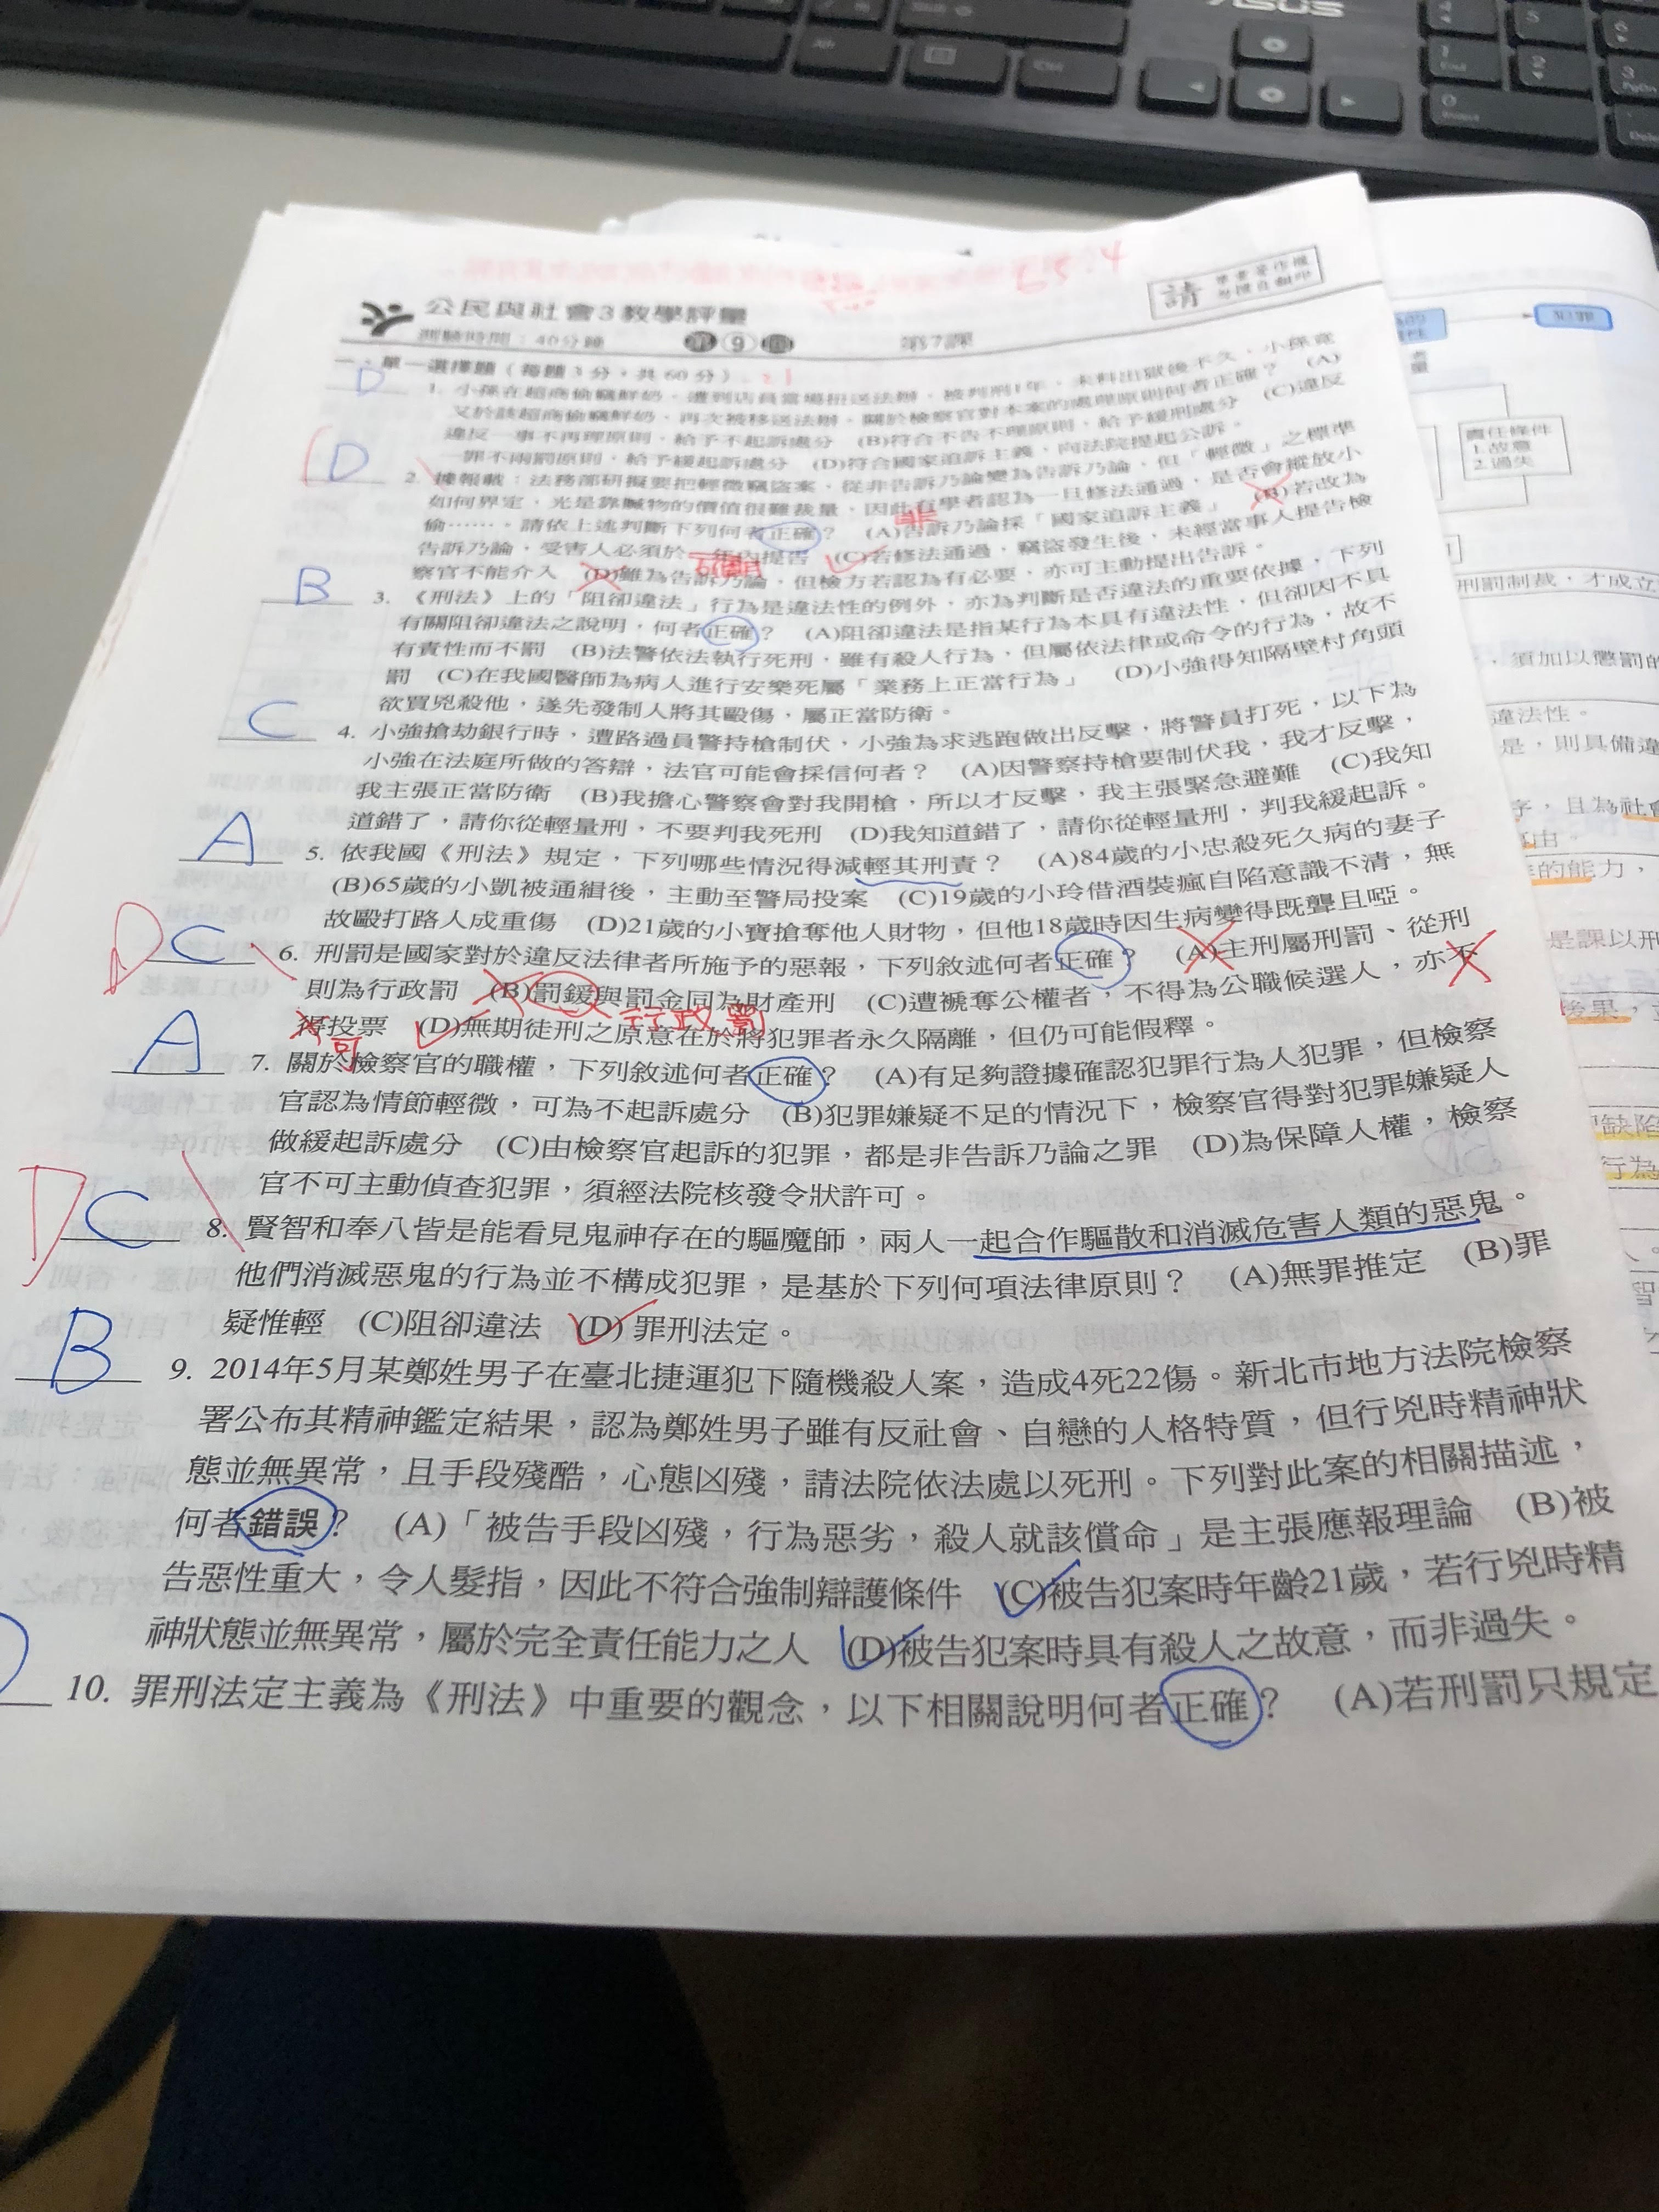 ASUS
Ctrl
請
公民與社會3教學評量
測驗時間：40分鐘 第9回 第7課
一、單一選擇題（每題3分，共60分）
D 1. 小孫在超商偷竊鮮奶，遭到店員當場扭送法辦，被判刑1年，未料出獄後不久，小孫竟
又於該超商偷竊鮮奶，再次被移送法辦，關於檢察官對本案的處理原則何者正確？ (A)
違反一事不再理原則，給予不起訴處分 (B)符合不告不理原則，給予緩刑處分 (C)違反
一罪不兩罰原則，給予緩起訴處分 (D)符合國家追訴主義，向法院提起公訴。
D 2. 據報載：法務部研擬要把輕微竊盜案，從非告訴乃論變為告訴乃論，但「輕微」之標準
如何界定，光是靠贓物的價值很難裁量，因此有學者認為一旦修法通過，是否會縱放小
偷……。請依上述判斷下列何者正確？ (A)告訴乃論採「國家追訴主義」 (B)若改為
非
告訴乃論，受害人必須於一年內提告 (C)若修法通過，竊盜發生後，未經當事人提告檢
察官不能介入 (D)雖為告訴乃論，但檢方若認為有必要，亦可主動提出告訴。
B 3. 《刑法》上的「阻卻違法」行為是違法性的例外，亦為判斷是否違法的重要依據，下列
有關阻卻違法之說明，何者正確？ (A)阻卻違法是指某行為本具有違法性，但卻因不具
有責性而不罰 (B)法警依法執行死刑，雖有殺人行為，但屬依法律或命令的行為，故不
罰 (C)在我國醫師為病人進行安樂死屬「業務上正當行為」 (D)小強得知隔壁村角頭
欲買兇殺他，遂先發制人將其毆傷，屬正當防衛。
C 4. 小強搶劫銀行時，遭路過員警持槍制伏，小強為求逃跑做出反擊，將警員打死，以下為
小強在法庭所做的答辯，法官可能會採信何者？ (A)因警察持槍要制伏我，我才反擊，
我主張正當防衛 (B)我擔心警察會對我開槍，所以才反擊，我主張緊急避難 (C)我知
道錯了，請你從輕量刑，不要判我死刑 (D)我知道錯了，請你從輕量刑，判我緩起訴。
A 5. 依我國《刑法》規定，下列哪些情況得減輕其刑責？ (A)84歲的小忠殺死久病的妻子
(B)65歲的小凱被通緝後，主動至警局投案 (C)19歲的小玲借酒裝瘋自陷意識不清，無
故毆打路人成重傷 (D)21歲的小寶搶奪他人財物，但他18歲時因生病變得既聾且啞。
D C 6. 刑罰是國家對於違反法律者所施予的惡報，下列敘述何者正確？ (A)主刑屬刑罰、從刑
則為行政罰 (B)罰鍰與罰金同為財產刑 (C)遭褫奪公權者，不得為公職候選人，亦不
行政罰
得投票 (D)無期徒刑之原意在於將犯罪者永久隔離，但仍可能假釋。
可
A 7. 關於檢察官的職權，下列敘述何者正確？ (A)有足夠證據確認犯罪行為人犯罪，但檢察
官認為情節輕微，可為不起訴處分 (B)犯罪嫌疑不足的情況下，檢察官得對犯罪嫌疑人
做緩起訴處分 (C)由檢察官起訴的犯罪，都是非告訴乃論之罪 (D)為保障人權，檢察
官不可主動偵查犯罪，須經法院核發令狀許可。
D C 8. 賢智和奉八皆是能看見鬼神存在的驅魔師，兩人一起合作驅散和消滅危害人類的惡鬼。
他們消滅惡鬼的行為並不構成犯罪，是基於下列何項法律原則？ (A)無罪推定 (B)罪
疑惟輕 (C)阻卻違法 (D)罪刑法定。
B 9. 2014年5月某鄭姓男子在臺北捷運犯下隨機殺人案，造成4死22傷。新北市地方法院檢察
署公布其精神鑑定結果，認為鄭姓男子雖有反社會、自戀的人格特質，但行兇時精神狀
態並無異常，且手段殘酷，心態凶殘，請法院依法處以死刑。下列對此案的相關描述，
何者錯誤？ (A)「被告手段凶殘，行為惡劣，殺人就該償命」是主張應報理論 (B)被
告惡性重大，令人髮指，因此不符合強制辯護條件 (C)被告犯案時年齡21歲，若行兇時精
神狀態並無異常，屬於完全責任能力之人 (D)被告犯案時具有殺人之故意，而非過失。
10. 罪刑法定主義為《刑法》中重要的觀念，以下相關說明何者正確？ (A)若刑罰只規定
責任條件
1.故意
2.過失
刑罰制裁，才成立
，須加以懲罰的
違法性。
是，則具備違
序，且為社會
的能力，
是課以刑
後果，
缺陷
行為